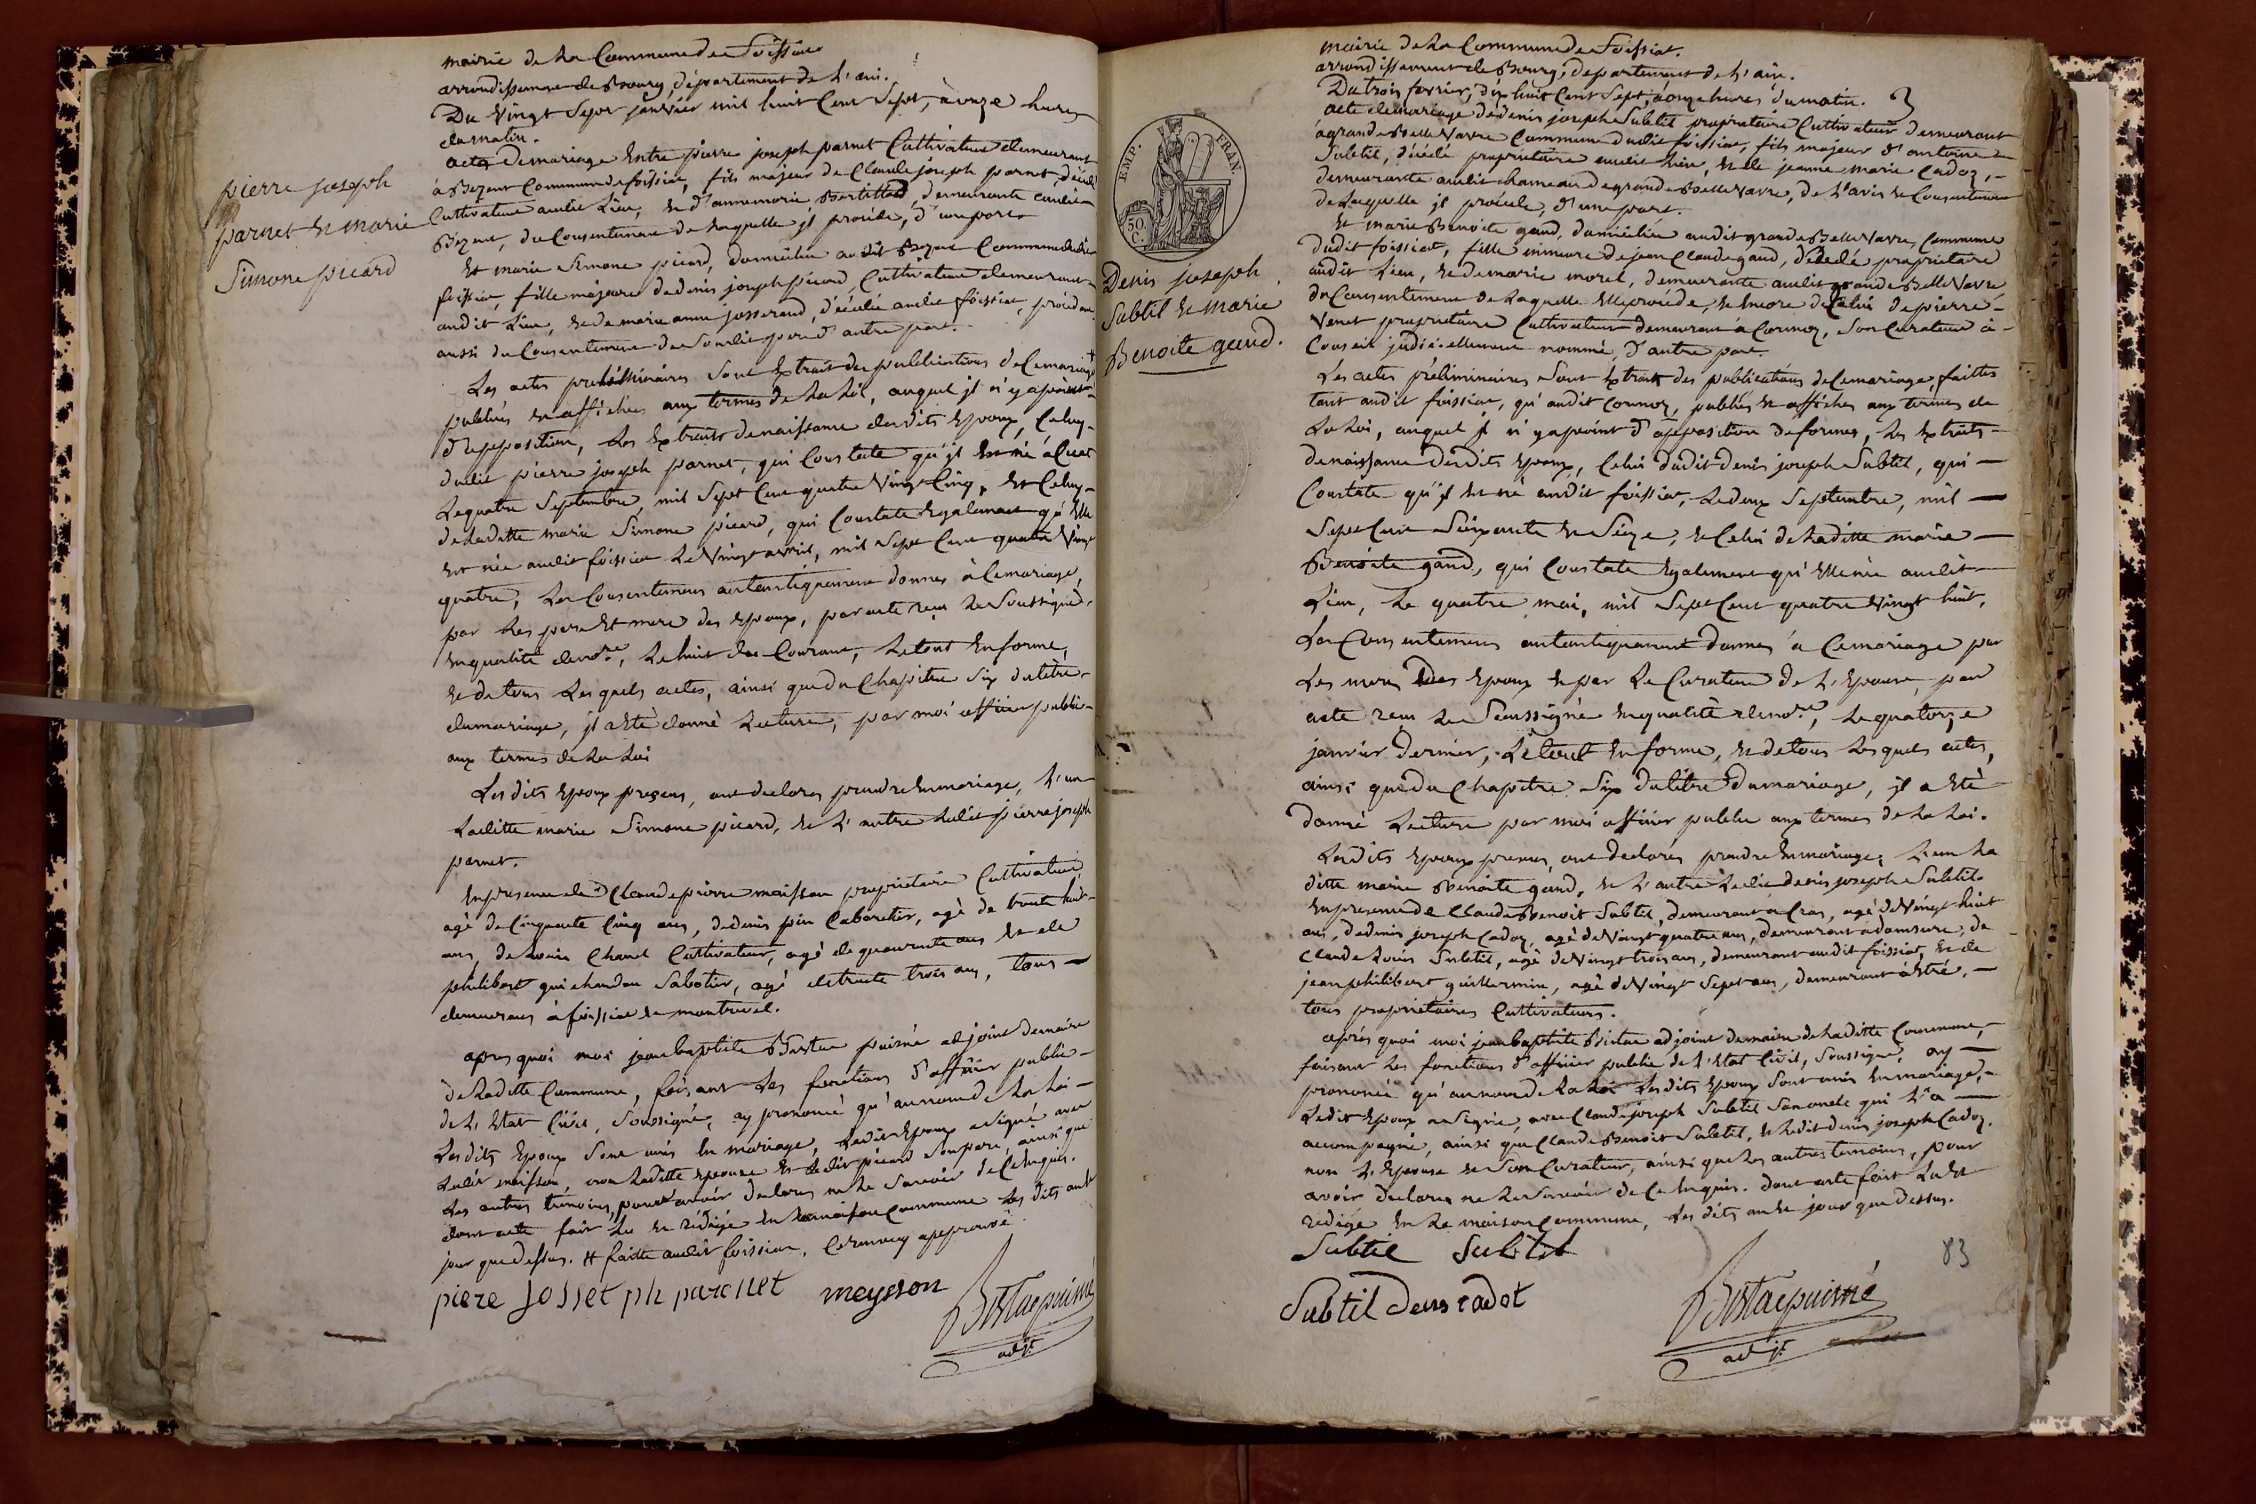 mairie de La Commune de Foissiat
arrondissement de Bourg, département de L'ain.
Du Vingt Sept janvier mil huit Cent Sept, à onze heures
du matin.
acte de mariage Entre pierre joseph parnet Cultivateur demeurant
à Bezent Commune de foissiat, fils majeur de Claude joseph parnet, décédé
Cultivateur audit Lieu, et d'annemarie, demeurante audit
Bezent, du Consentement de Laquelle il procéde, d'une part
Et marie Simone picard, domiciliée audit Bezent Commune dudit
foissiat, fille majeure de denis joseph picard, Cultivateur demeurant
audit Lieu, et de marie anne josserand, décédée audit foissiat, procédant
aussi du Consentement de Sondit pere d'autre part.
Les actes préliminaires Sont Extrait des publications de Ce mariage
publiées et affichées aux termes de La Loi, auquel il n'y a point
d'opposition, Les Extraits de naissance desdits Epoux, Celuy
dudit pierre joseph parnet, qui Constate qu'il Est né à Curt
Le quatre Septembre, mil Sept Cent quatre Vingt Cinq, Et Celuy
de Laditte marie Simone picard, qui Constate Egalement qu'Elle
Est née audit foissiat Le Vingt avril, mil Sept Cent quatre Vingt
quatre, Les Consentemens autantiquement donnés à Ce mariage,
par Les pere Et mere des Epoux, par acte reçu Le Soussigné,
En qualité de no.re, Le huit du Courant, Le tout En forme,
Et de tous Lesquels actes, ainsi que du Chapitre Six du titre
du mariage, il a Eté donné Lecture, par moi officier public
aux termes de La Loi
Lesdits Epoux presens, ont declarés prendre En mariage, L'un
Laditte marie Simone picard, Et L'autre Ledit pierre joseph
parnet.
En presence de Claude pierre maisson proprietaire Cultivateur
agé de Cinquante Cinq ans, de denis pin Cabaretier, agé de trente huit
ans, de Louis Chanel Cultivateur, agé de quarante ans Et de
philibert guichardon Sabotier, agé de trente trois ans, tous
demeurans à foissiat et montrevel.
apres quoi moi jean baptiste Bistac puiné adjoint de maire
de Laditte Commune, faisant Les fonctions d'officier public
de L'Etat Civil, Soussigné, ay prononcé qu'au nom de La Loi
Lesdits Epoux Sont unis En mariage, Ledit Epoux a Signé avec
Ledit maisson, non Laditte Epouse Et Ledit picard Son pere, ainsi que
Les autres temoins, pour avoir declarés ne Le Savoir de Ce Enquis.
dont acte fait Lu Et rédigé En La maison Commune Les dits an Et
jour que dessus. # faitte audit foissiat, Ce renvoy approuvé.
piere Josset ph parcnet meysson
Bistac puiné
adj.t
pierre joseph
parnet Et marie
Simone picard
mairie de La Commune de Foissiat.
arrondissement de Bourg, departement de L'ain.
Du trois fevrier, dix huit Cent Sept, à onze heures du matin.
acte de mariage de denis joseph Subtil proprietaire Cultivateur demeurant
à grande Bellevavre Commune dudit foissiat, fils majeur d'antoine
Subtil, décédé proprietaire audit Lieu, Et de jeanne marie Cadoz,
demeurante audit hameau de grande Bellevavre, de L'avis Et Consentement
de Laquelle il procéde, d'une part.
Et marie Benoite gand, domiciliée audit grande Bellevavre, Commune
dudit foissiat, fille mineure de jean Claude gand, décédé proprietaire
audit Lieu, Et de marie morel, demeurante audit grande Bellevavre
du Consentement de Laquelle Elle procéde, Et Encore de Celui de pierre
Venet proprietaire Cultivateur demeurant a Cormoz, Son Curateur à
Conseil judiciellement nommé, d'autre part.
Les actes préliminaires Sont Extraits des publications de Ce mariage, faittes
tant audit foissiat, qu'audit Cormoz, publiées Et affichées aux termes de
La Loi, auquel il n'y a point d'opposition de formée, Les Extraits
de naissance desdits Epoux, Celui dudit denis joseph Subtil, qui
Constate qu'il Est né audit foissiat, Le deux Septembre, mil
Sept Cent Soixante Et Seize, Et Celui de Laditte marie
Benoite gand, qui Constate Egalement qu'Elle née audit
Lieu, Le quatre mai, mil Sept Cent quatre Vingt huit,
Les Consentemens autantiquement donnés à Ce mariage par
Les meres Des Epoux Et par Le Curateur de L'Epouse, par
acte reçu Le Soussigné En qualité de no.re, Le quatorze
janvier dernier, Le tout En forme, Et de tous Lesquels actes,
ainsi que du Chapitre Six du titre du mariage, il a Eté
donné Lecture par moi officier public aux termes de La Loi.
Lesdits Epoux presens, ont declarés prendre En mariage, L'un La
ditte marie Benoite gand, Et L'autre Ledit denis joseph Subtil.
En presence de Claude Benoit Subtil, demeurant à Cras, agé de Vingt huit
ans, de denis joseph Cadoz, agé de Vingt quatre ans, demeurant a domsure, de
Claude Louis Subtil, agé de Vingt trois ans, demeurant audit foissiat, Et de
jean philibert guillermin, agé de Vingt Sept ans, demeurant à Etré,
tous proprietaires Cultivateurs.
aprés quoi moi jean baptiste Bistac adjoint de maire de Laditte Commune,
faisant Les fonctions d'officier public de L'Etat Civil, Soussigné, ay
prononcé qu'au nom de La Loi Lesdits Epoux Sont unis En mariage,
Ledit Epoux a Signé, avec Claude joseph Subtil Son oncle qui L'a
accompagné, ainsi que Claude Benoit Subtil, Et Ledit denis joseph Cadoz,
non L'Epouse Et Son Curateur, ainsi que Les autres temoins, pour
avoir declarés ne Le Savoir de Ce Enquis. Dont acte fait Lu Et
rédigé En La maison Commune, Les dits an Et jour que Dessus.
Subtil Subtil
83
Subtil Denis cadot
Bistac puiné
adj.t
EMP. FRAN.
50
C.
Denis joseph
Subtil Et marie
Benoite gand.